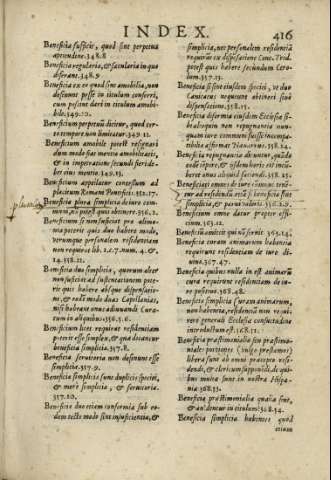 INDEX.
416
Beneficia sufficit, quod sint perpetua
aptitudine. 348.8
Beneficia regularia, & sæcularia in quo
differant. 348.9
Beneficia ex eo quod sint amobilia, non
desinunt posse in titulum conferri,
cum possint dari in titulum amobi-
bile. 349.10.
Beneficium perpetuū dicitur, quod cer-
to tempore non limitatur. 349.12.
Beneficium amobile potest resignari
dum modo fiat mentio amobilitatis,
& in impetratione secundi fieri de-
bet eius mentio. 349.13.
Beneficium appellatur censuum ad
placitum Romani Pontificis. 352.17.
Beneficia plura simplicia de iure com-
muni, nō potest quis obtinere. 356.2.
Beneficium si non sufficiat pro alimēto
poterit quis duo habere modo,
verumque personalem residentiam
non requirat lib. 1. c.7. num. 4. &
14. 358.12.
Beneficia duo simplicia, quorum alte-
num sufficiat ad sustentationem pote-
rit quis habere absque dispensatio-
ne, & tales modo duas Capellanias,
nisi habeant onus adiuuandi Curā-
tum in aliquibus. 356.5.6.
Beneficium licet requirat residentiam
poterit esse simplex, & qua dicantur
beneficia simplicia. 357.8.
Beneficia seruitoria non desinunt esse
simplicia. 357.9.
Beneficia simplicia sunt duplicis speciei,
& merè simplicia, & seruitoria.
357.10.
Beneficia duo etiam conformia sub eo-
dem tecto modo sint insufficientia, &
simplicia, nec personalem residentiā
requirāt ex dispositione Conc. Trid.
potest quis habere secundum Caro-
lum. 357.13.
Beneficia si sint eiusdem speciei, vt duo
Canicatus nequeunt obtineri sine
dispensatione. 358.15.
Beneficia difformia eiusdem Ecclesiæ si-
ue aliqualem non repugnantia nun-
quam iure communi fuisse incompa-
tibilia affirmat Nauarrus. 358.14.
Beneficia repugnantia dicuntur, quādo
eadē tēpore, & eisdem horis est incū-
bens onus aliquod faciendi. 358.15.
Beneficiati omnes de iure communi tenē-
tur ad residendū etiā si beneficia sint
simplicia, & parui valoris. 356.2.9.
Beneficium omne datur propter offi-
cium. 363.12.
Beneficiū amittit qui nō seruit. 365.14.
Beneficia curam animarum habentia
requirunt residentiam de iure di-
uino. 367.47.
Beneficia quibus nulla inest animarū
cura requirunt residentiam de iu-
re positiuo. 368.48.
Beneficia simplicia Curam animarum,
non habentia, residentiā non requi-
runt generali Ecclesiæ consuetudine
introductum est. 368.51.
Beneficia præstimonialia siue præstimo-
niales portiones (vulgo prestameras)
libera sunt ab omni praecepto resi-
dendi, & clericum supponūt, de qui-
bus multa sunt in nostra Hispa-
nia. 368.53.
Beneficia præstimonialia qualia sint,
& an dentur in titulum. 368.54.
Beneficia simplicia habentes quod
etiam